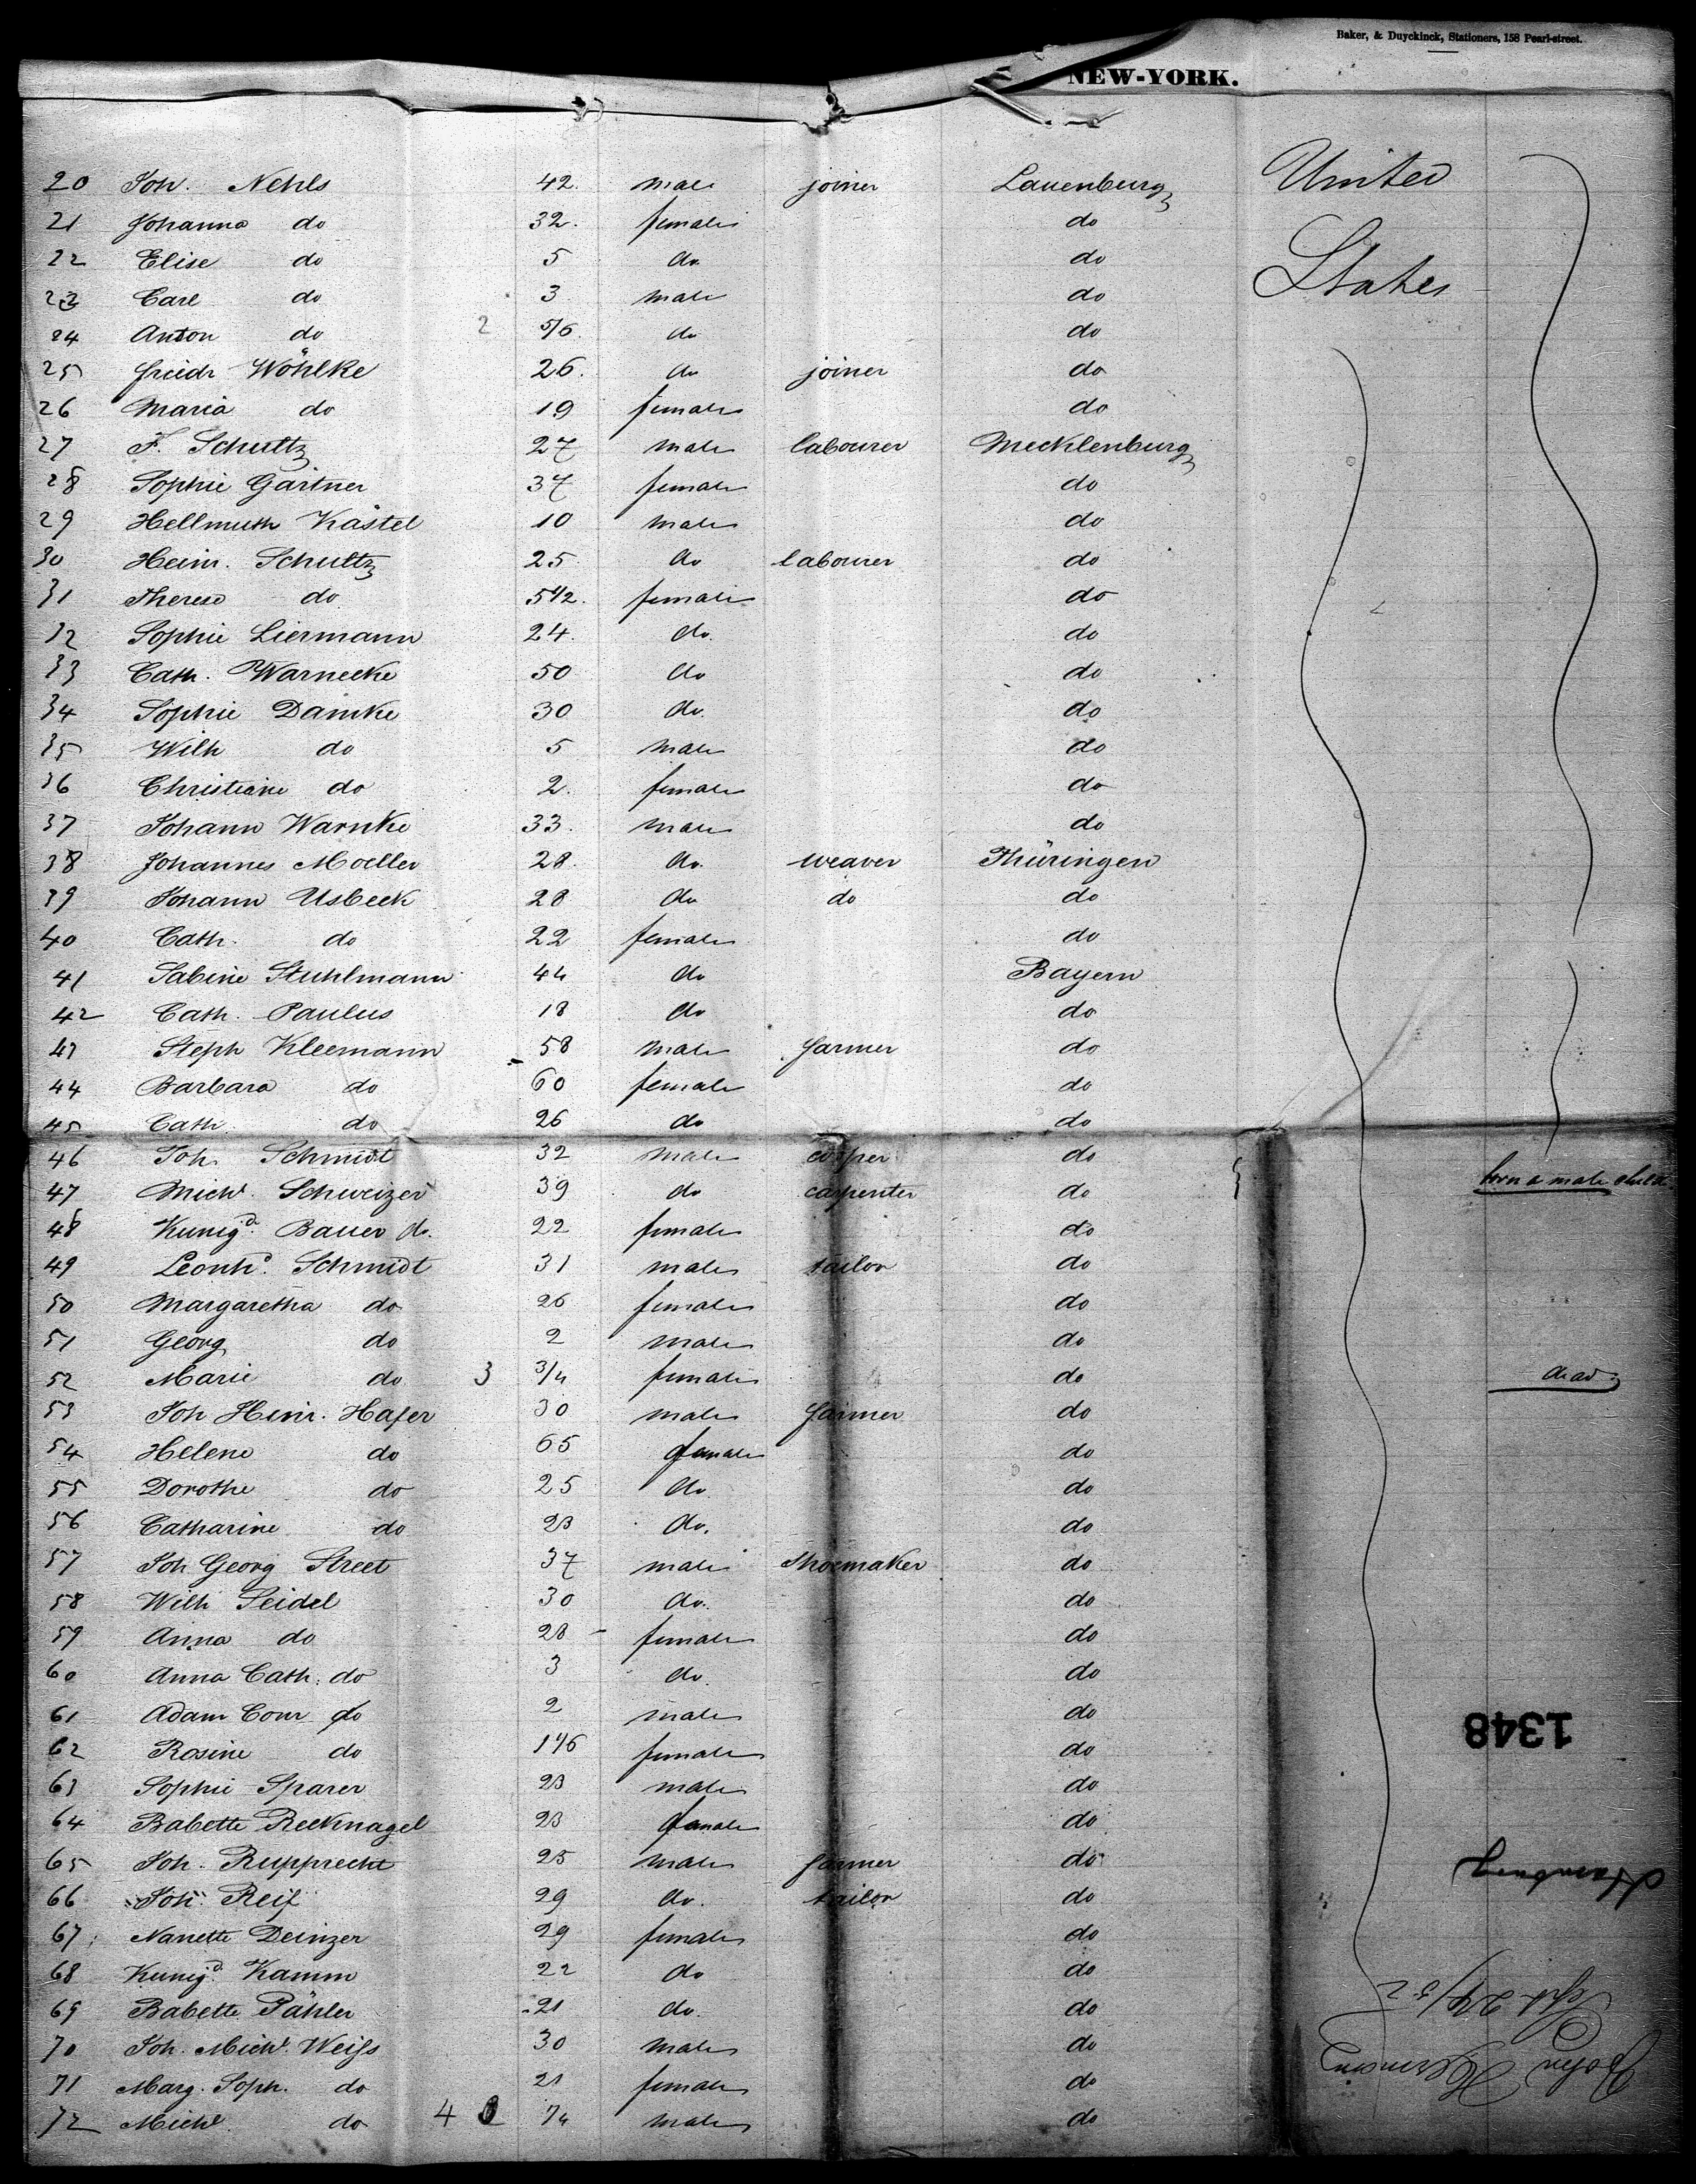 Baker, & Duyckinck, Stationers, 158 Pearl-street.
NEW-YORK.
20 Joh. Nehls 42. male joiner Lauenburg United
21 Johanna do 32. female do States
22 Elise do 5 do do
23 Carl do 3 male do
24 Anton do 2 5/6 do do
25 Friedr Wöhlke 26. do joiner do
26 Maria do 19 female do
27 F. Schultz 27 male labourer Mecklenburg
28 Sophie Gärtner 37 female do
29 Hellmuth Kästel 10 male do
30 Heinr. Schultz 25 do labourer do
31 Therese do female do
32 Sophie Liermann 24. do. do
33 Cath. Warnecke 50 do do
34 Sophie Damke 30 do. do
35 Wilh do 5 male do
36 Christiane do 2. female do
37 Johann Warnke 33. male do
38 Johannes Moeller 28. do. weaver Thüringen
39 Johann Usbeck 28 do do do
40 Cath. do 22 female do
41 Sabine Stuhlmann 44 do Bayern
42 Cath. Paulus 18 do do
43 Steph Kleemann 58 male farmer do
44 Barbara do 60 female do
45 Cath. do 26 do do
46 Joh. Schmidt 32 male cooper do
47 Michl. Schweizer 39 do carpenter do born a male child.
48 Kunigd. Bauer do. 22 female do
49 Leonhd. Schmidt 31 male tailor do
50 Margaretha do 26 female do
51 Georg do 2 male do
52 Marie do 3 3/4 female do dead.
53 Joh Heinr. Hafer 30 male farmer do
54 Helene do 65 female do
55 Dorothe do 25 do. do
56 Catharine do 23 do. do
57 Joh Georg Street 37 male Shoemaker do
58 Wilh Seidel 30 do. do
59 Anna do 28 female do
60 Anna Cath. do 3 do. do
61 Adam Conr do 2 male do
62 Rosine do female do
63 Sophie Sparer 23 male do
64 Babette Recknagel 23 female do
65 Joh. Rupprecht 25 male farmer do
66 Joh. Reif 29 do. tailor do
67 Nanette Deinzer 29 female do
68 Kunigd. Kamm 22 do do
69 Babette Pähler 21 do. do
70 Joh. Michl. Weifs 30 male do
71 Marg. Soph. do 21 female do
72 Michl. do 4 male do
1348
Hamburg
Sept 24/52
John Hermann